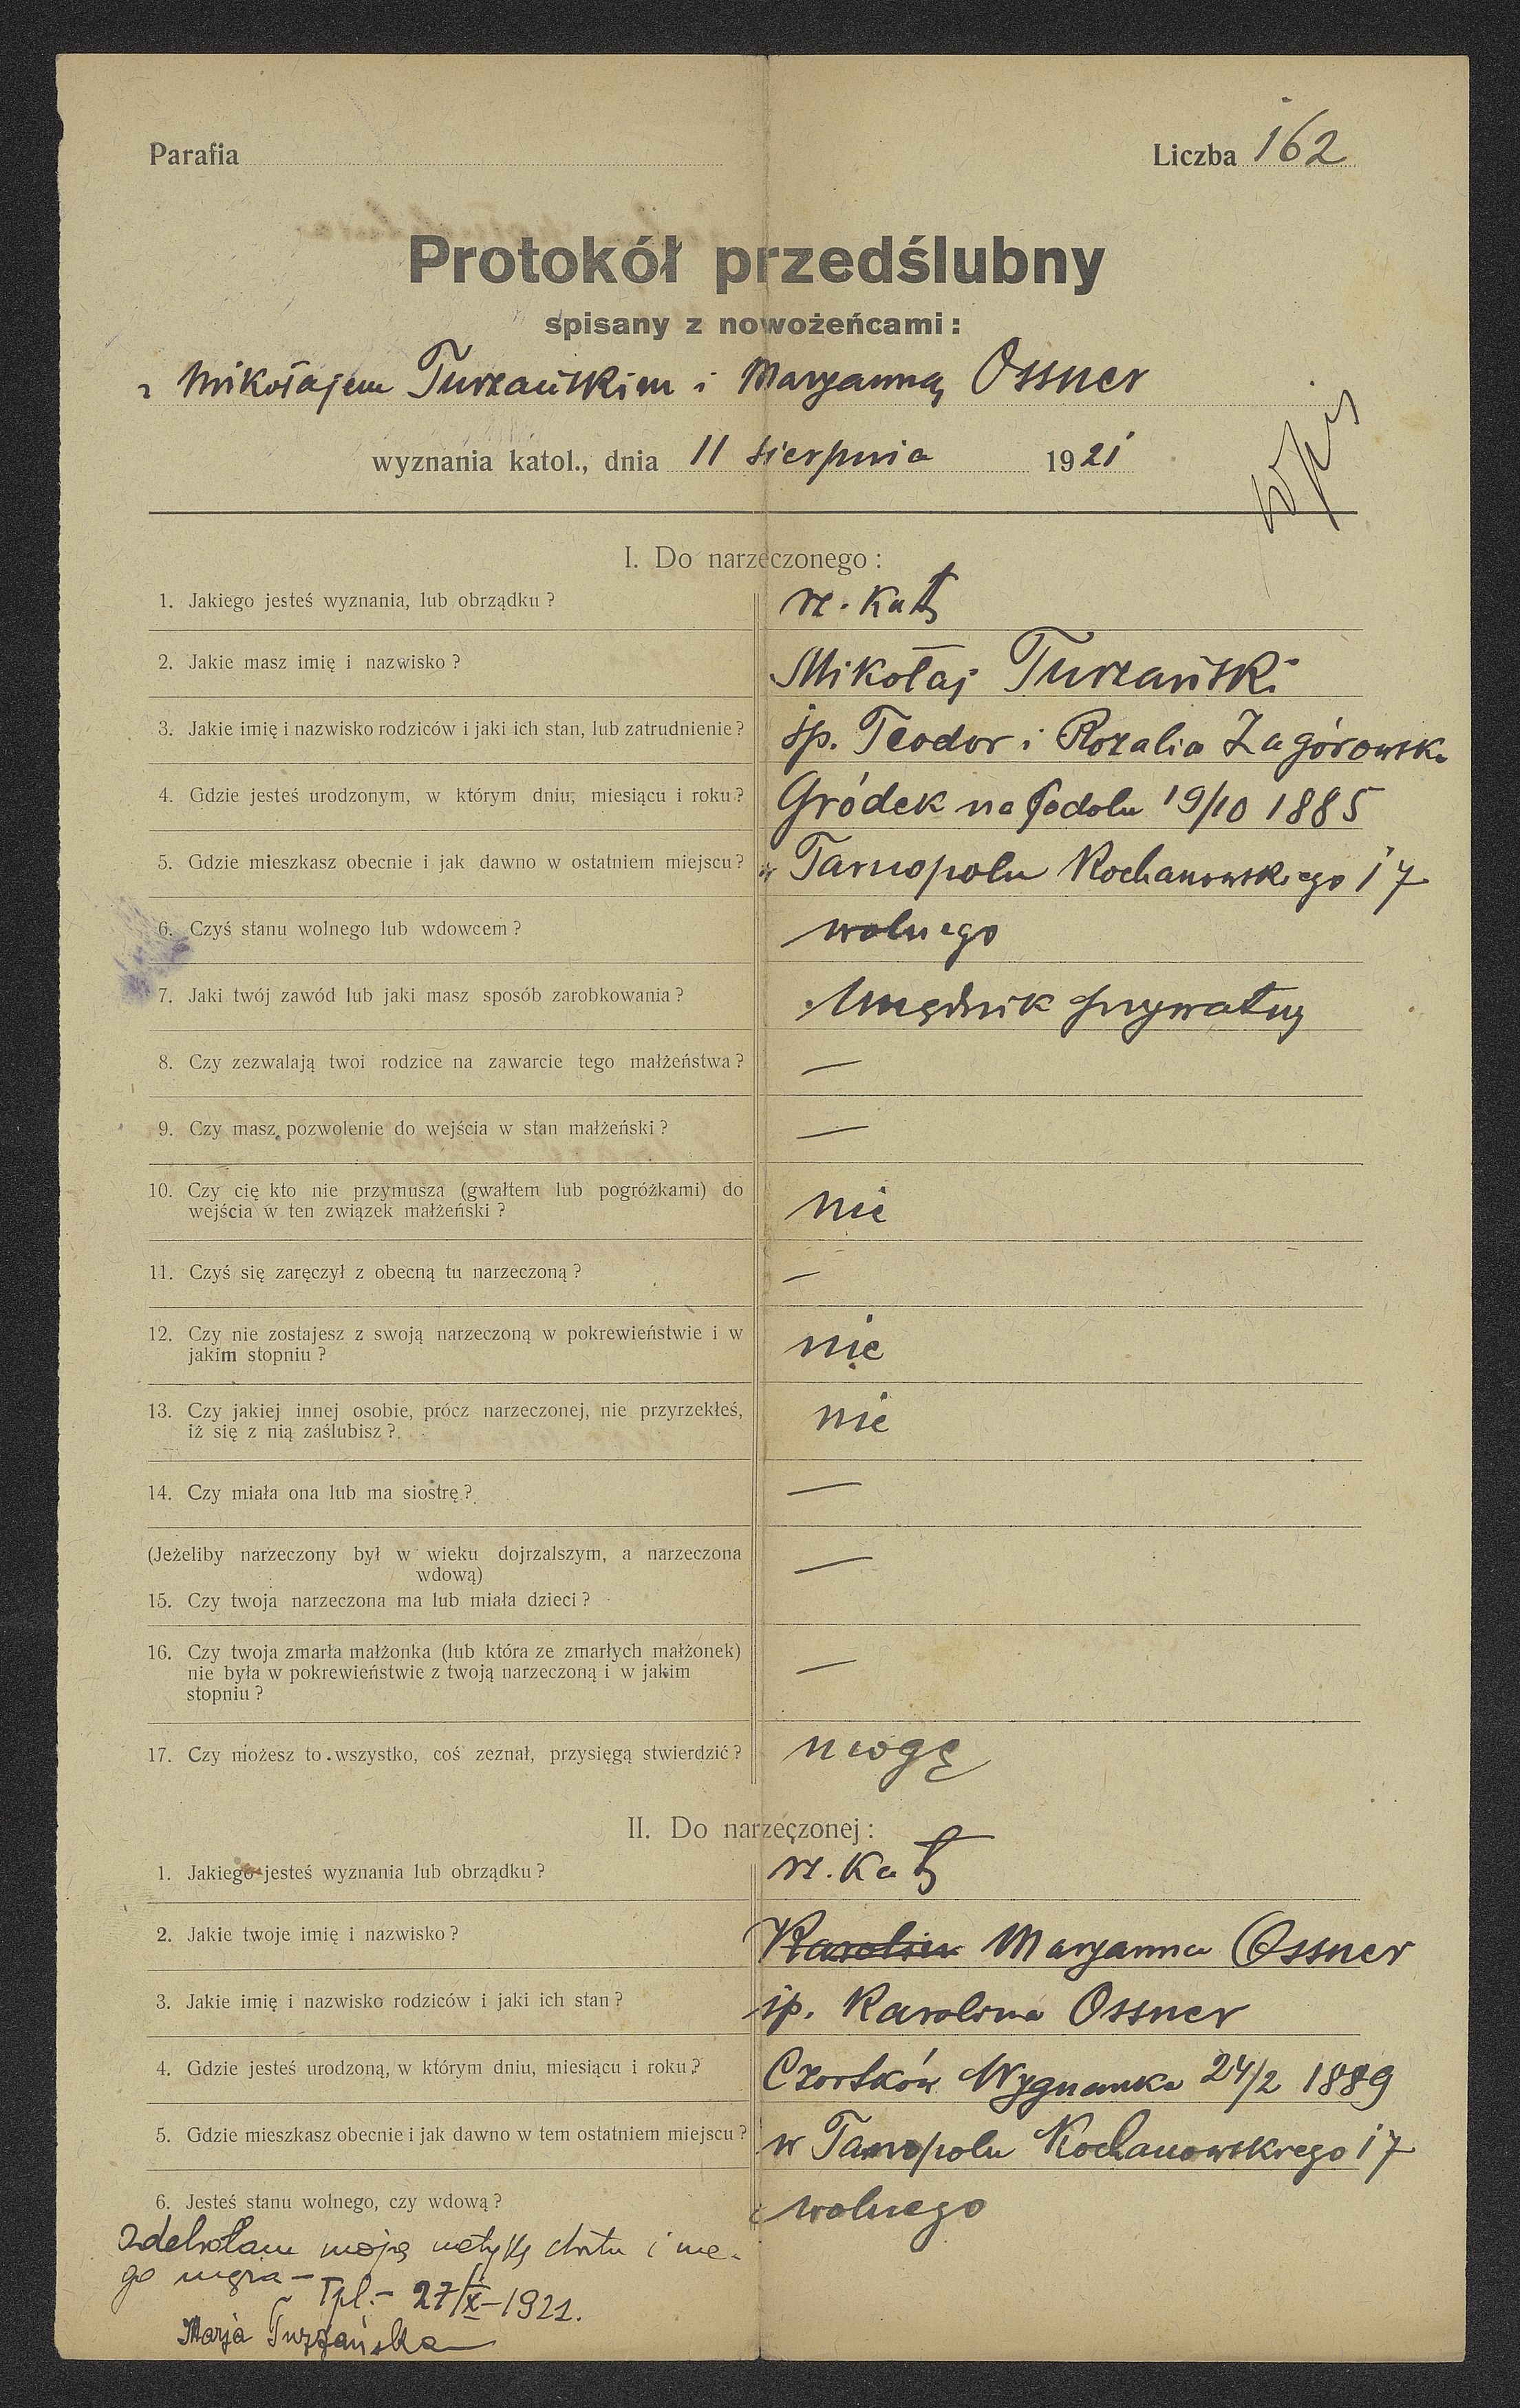 Parafia
Liczba 162
Protokół przedślubny
spisany z nowożeńcami:
z Mikołajem Turzańskim i Maryanną Ossner
wyznania katol., dnia 11 sierpnia 1921
I. Do narzeczonego:
1. Jakiego jesteś wyznania, lub obrządku? rz. kat
2. Jakie masz imię i nazwisko? Mikołaj Turzański
3. Jakie imię i nazwisko rodziców i jaki ich stan, lub zatrudnienie? śp. Teodor i Rozalia Zagórowska
4. Gdzie jesteś urodzonym, w którym dniu, miesiącu i roku? Gródek na Podolu 19/10 1885
5. Gdzie mieszkasz obecnie i jak dawno w ostatniem miejscu? w Tarnopolu Kochanowskiego 17
6. Czyś stanu wolnego lub wdowcem? wolnego
7. Jaki twój zawód lub jaki masz sposób zarobkowania? Urzędnik prywatny
8. Czy zezwalają twoi rodzice na zawarcie tego małżeństwa? —
9. Czy masz pozwolenie do wejścia w stan małżeński? —
10. Czy cię kto nie przymusza (gwałtem lub pogróżkami) do
wejścia w ten związek małżeński? nie
11. Czyś się zaręczył z obecną tu narzeczoną? —
12. Czy nie zostajesz z swoją narzeczoną w pokrewieństwie i w
jakim stopniu? nie
13. Czy jakiej innej osobie, prócz narzeczonej, nie przyrzekłeś,
iż się z nią zaślubisz? nie
14. Czy miała ona lub ma siostrę? —
(Jeżeliby narzeczony był w wieku dojrzalszym, a narzeczona
wdową) —
15. Czy twoja narzeczona ma lub miała dzieci?
16. Czy twoja zmarła małżonka (lub która ze zmarłych małżonek)
nie była w pokrewieństwie z twoją narzeczoną i w jakim
stopniu? —
17. Czy możesz to wszystko, coś zeznał, przysięgą stwierdzić? mogę
II. Do narzeczonej:
1. Jakiego jesteś wyznania lub obrządku? rz. kat
2. Jakie twoje imię i nazwisko? Karolina Maryanna Ossner
3. Jakie imię i nazwisko rodziców i jaki ich stan? śp. Karolina Ossner
4. Gdzie jesteś urodzoną, w którym dniu, miesiącu i roku? Czortków Wygnanka 24/2 1889
5. Gdzie mieszkasz obecnie i jak dawno w tem ostatniem miejscu? w Tarnopolu Kochanowskiego 17
6. Jesteś stanu wolnego, czy wdową? wolnego
Odebrałam moją metrykę chrztu i me-
go męża — Tpl. — 27/X — 1921.
Marja Turzańska